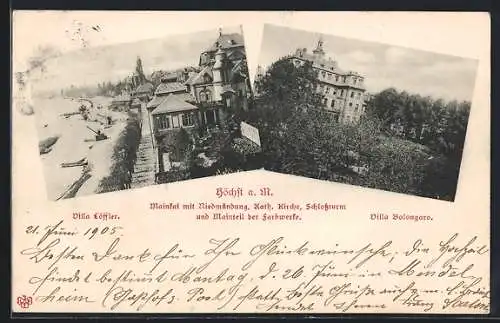 Höchst a. M.
Mainkai mit Niedmündung, Kath. Kirche, Schloßturm
und Mainteil der Farbwerke.
Villa Löffler.
Villa Bolongaro.
21. Juni 1905.
Besten Dank für Ihr Glückwünsche, die Hochzeit
findet bestimmt Montag, d. 26 Juni in Mindel
heim (Gasthof z. Post) statt. Beste Grüße auch